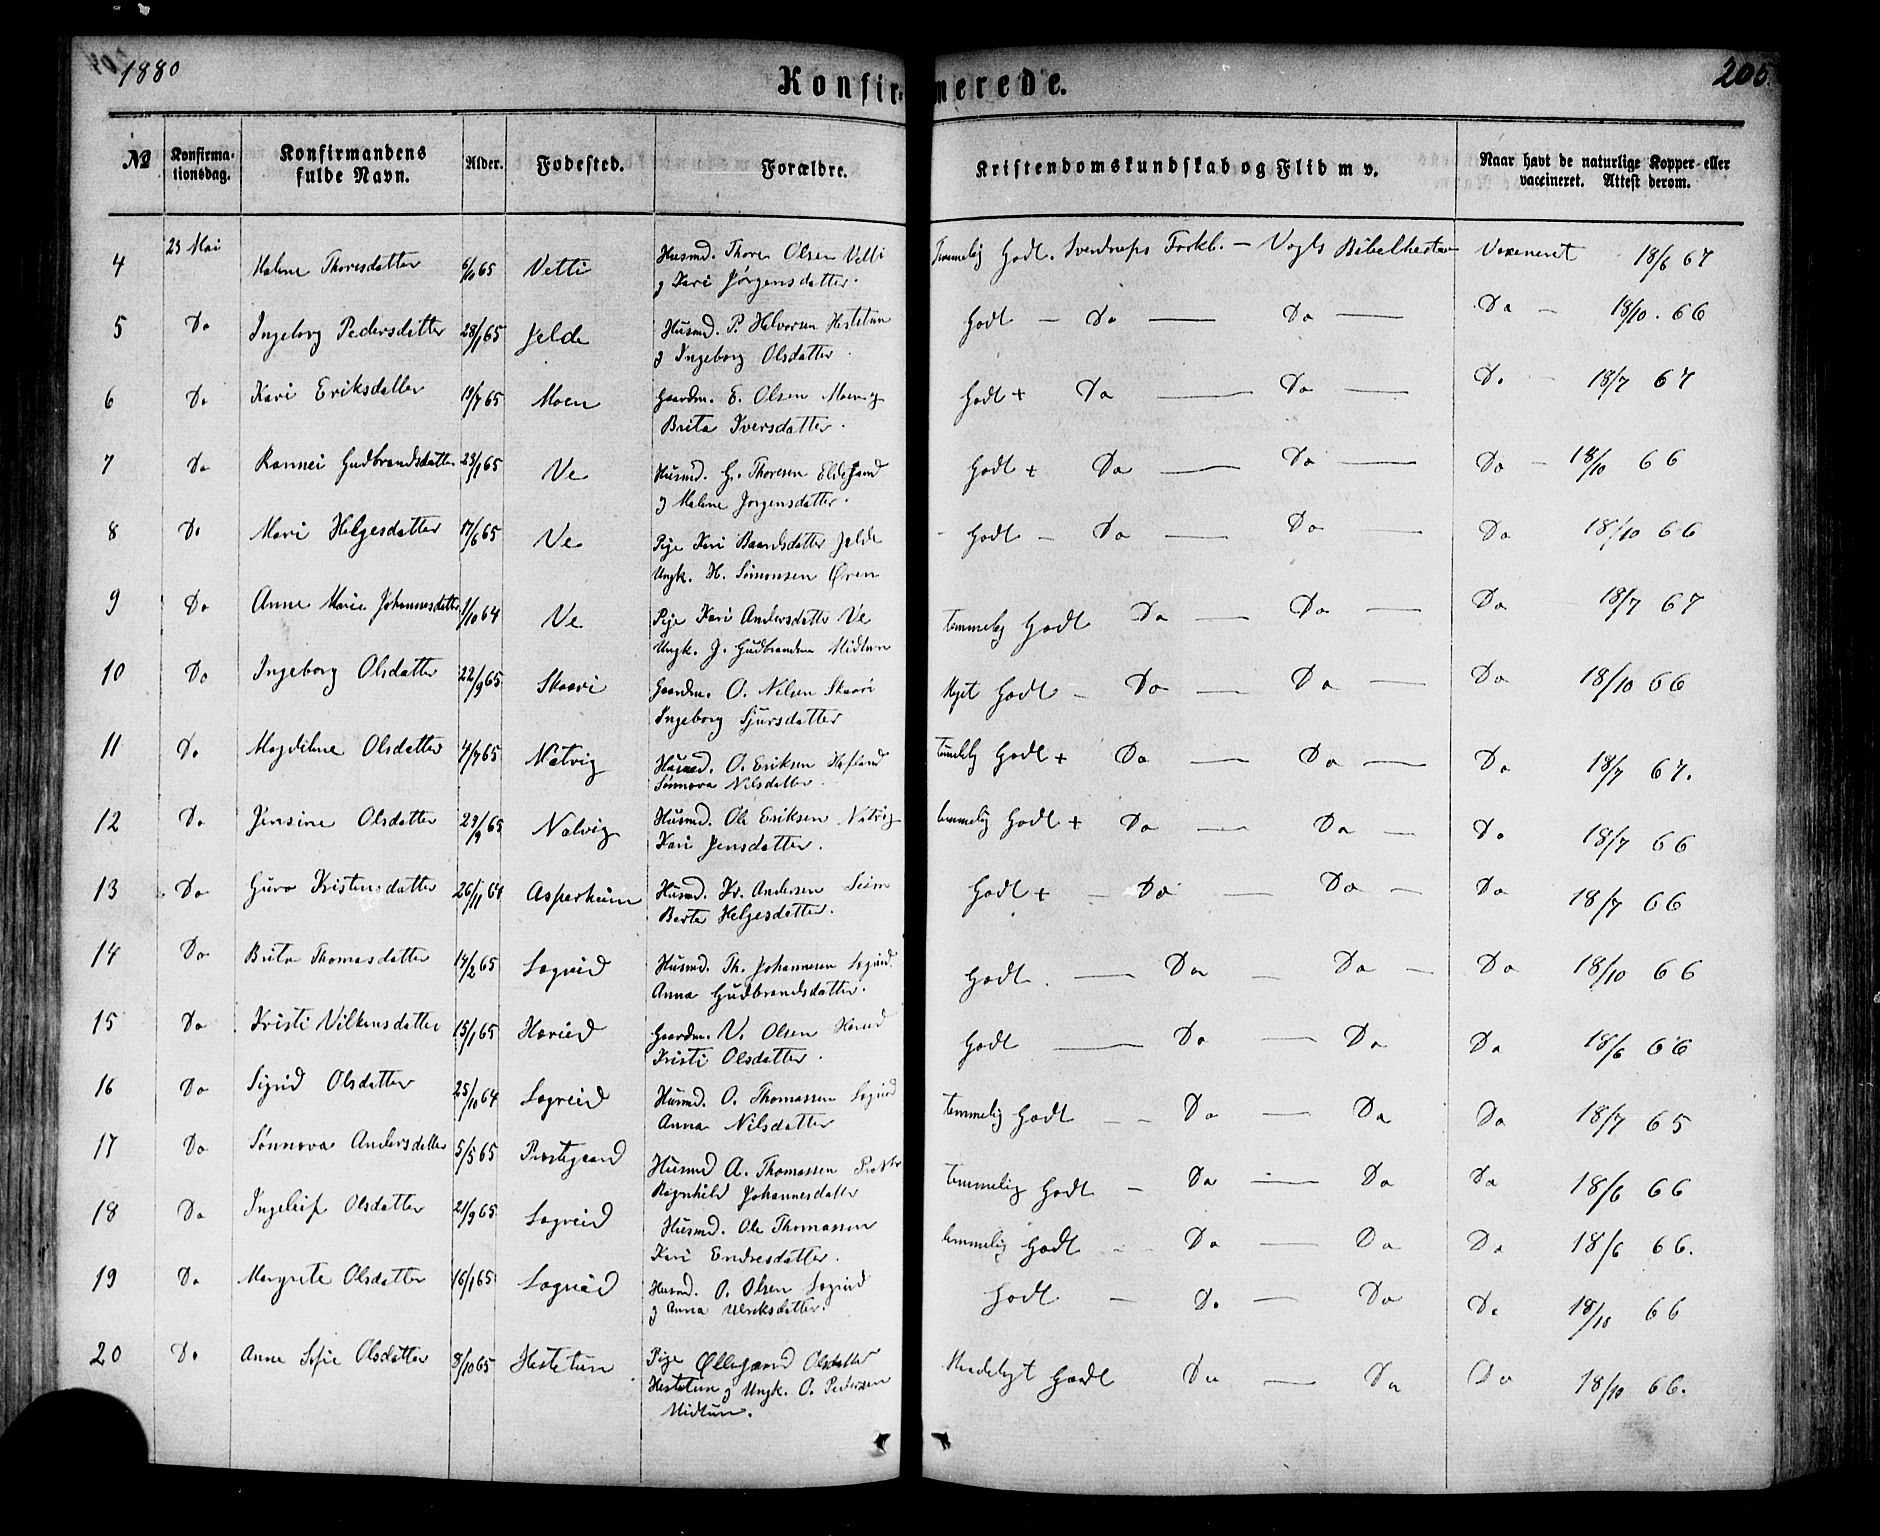 1880 Konfirmerede. 205.
№ Konfirmationsdag. Konfirmandens fulde Navn. Alder. Fødested. Forældre. Kristendomskundskab og Flid m v. Naar havt de naturlige Kopper eller vaccineret. Attest derom.
4 23 Mai Malene Thoresdatter 6/10 65 Vetti Husmd. Thore Olsen Vetti Temmelig Godt. Sverdrups Forkl. — Vogts Bibelhistor Vaxeneret 18/6 67
g Kari Jørgensdatter.
5 Do Ingeborg Pedersdatter 28/1 65 Jelde Husmd. P. Halvorsen Hestetun Godt — Do — Do — Do — 18/10. 66
g Ingeborg Olsdatter.
6 Do Kari Eriksdatter 19/7 65 Moen Gaardm. E. Olsen Moen g Godt + Do — Do — Do — 18/7 67
Brita Iversdatter.
7 Do Rannei Gudbrandsdatter 23/1 65 Ve Husmd. G. Thoresen Godt + Do — Do — Do — 18/10 66
g Malene Jørgensdatter.
8 Do Mari Helgesdatter 17/6 65 Ve Pige Kari Baardsdatter Jelde Godt — Do — Do — Do 18/10 66
Ungk. H. Simonsen Øren
9 Do Anne Marie Johannesdatter 1/10 64 Ve Pige Kari Andersdatter Ve temmelig Godt Do — Do — Do 18/7 67
Ungk. J. Gudbrandsen Midtun
10 Do Ingeborg Olsdatter 22/9 65 Skaari Gaardm. O. Nilsen Skaari Meget Godt — Do — Do — Do 18/10 66
Ingeborg Sjursdatter
11 Do Magdilene Olsdatter 4/7 65 Natvig Husmd. O. Eriksen Hofland temelig Godt + Do — Do — Do 18/7 67.
Sønnova Nilsdatter.
12 Do Jensine Olsdatter 23/9 65 Natvig Husmd. Ole Eriksen Natvig temmelig Godt + Do — Do — Do 18/7 66
Kari Jensdatter.
13 Do Guro Kristensdatter 26/11 64 Asperheim Husmd. Kr. Andersen Seim Godt + — Do — Do — Do 18/7 66
Berta Helgesdatter.
14 Do Brita Thomasdatter 14/2 65 Sogreid Husmd. Th. Johannesen Sogreid Godt. — Do — Do — Do 18/10 66
Anna Gudbrandsdatter.
15 Do Kristi Vilkensdatter 15/1 65 Hæreid Gaardm. V. Olsen Hæreid Godt — Do — Do — Do 18/6 66
Kristi Olsdatter.
16 Do Sigrid Olsdatter 25/10 64 Sogreid Husmd. O. Thomassen Sogreid temmelig Godt — — Do — Do Do 18/7 65
Anna Nilsdatter
17 Do Sønnova Andersdatter 5/5 65 Prestegaard Husmd A. Thomassen temmelig Godt — Do — Do Do 18/6 66
Ragnhild Johannesdatter
18 Do Ingeleif Olsdatter 21/9 65 Sogreid Husmd. Ole Thomassen temmelig Godt — Do — Do Do 18/6 66.
Kari Endresdatter.
19 Do Margrete Olsdatter 16/1 65 Sogreid Husmd. O. Olsen Sogreid Godt — Do — Do Do 18/10 66
g Anna Ulriksdatter.
20 Do Anne Sofie Olsdatter 8/10 65 Hestetun Pige Øllegaard Olsdatter Maadeligt Godt Do — Do Do 18/10 66.
Hestetun g Ungk. O. Pedersen
Midtun.